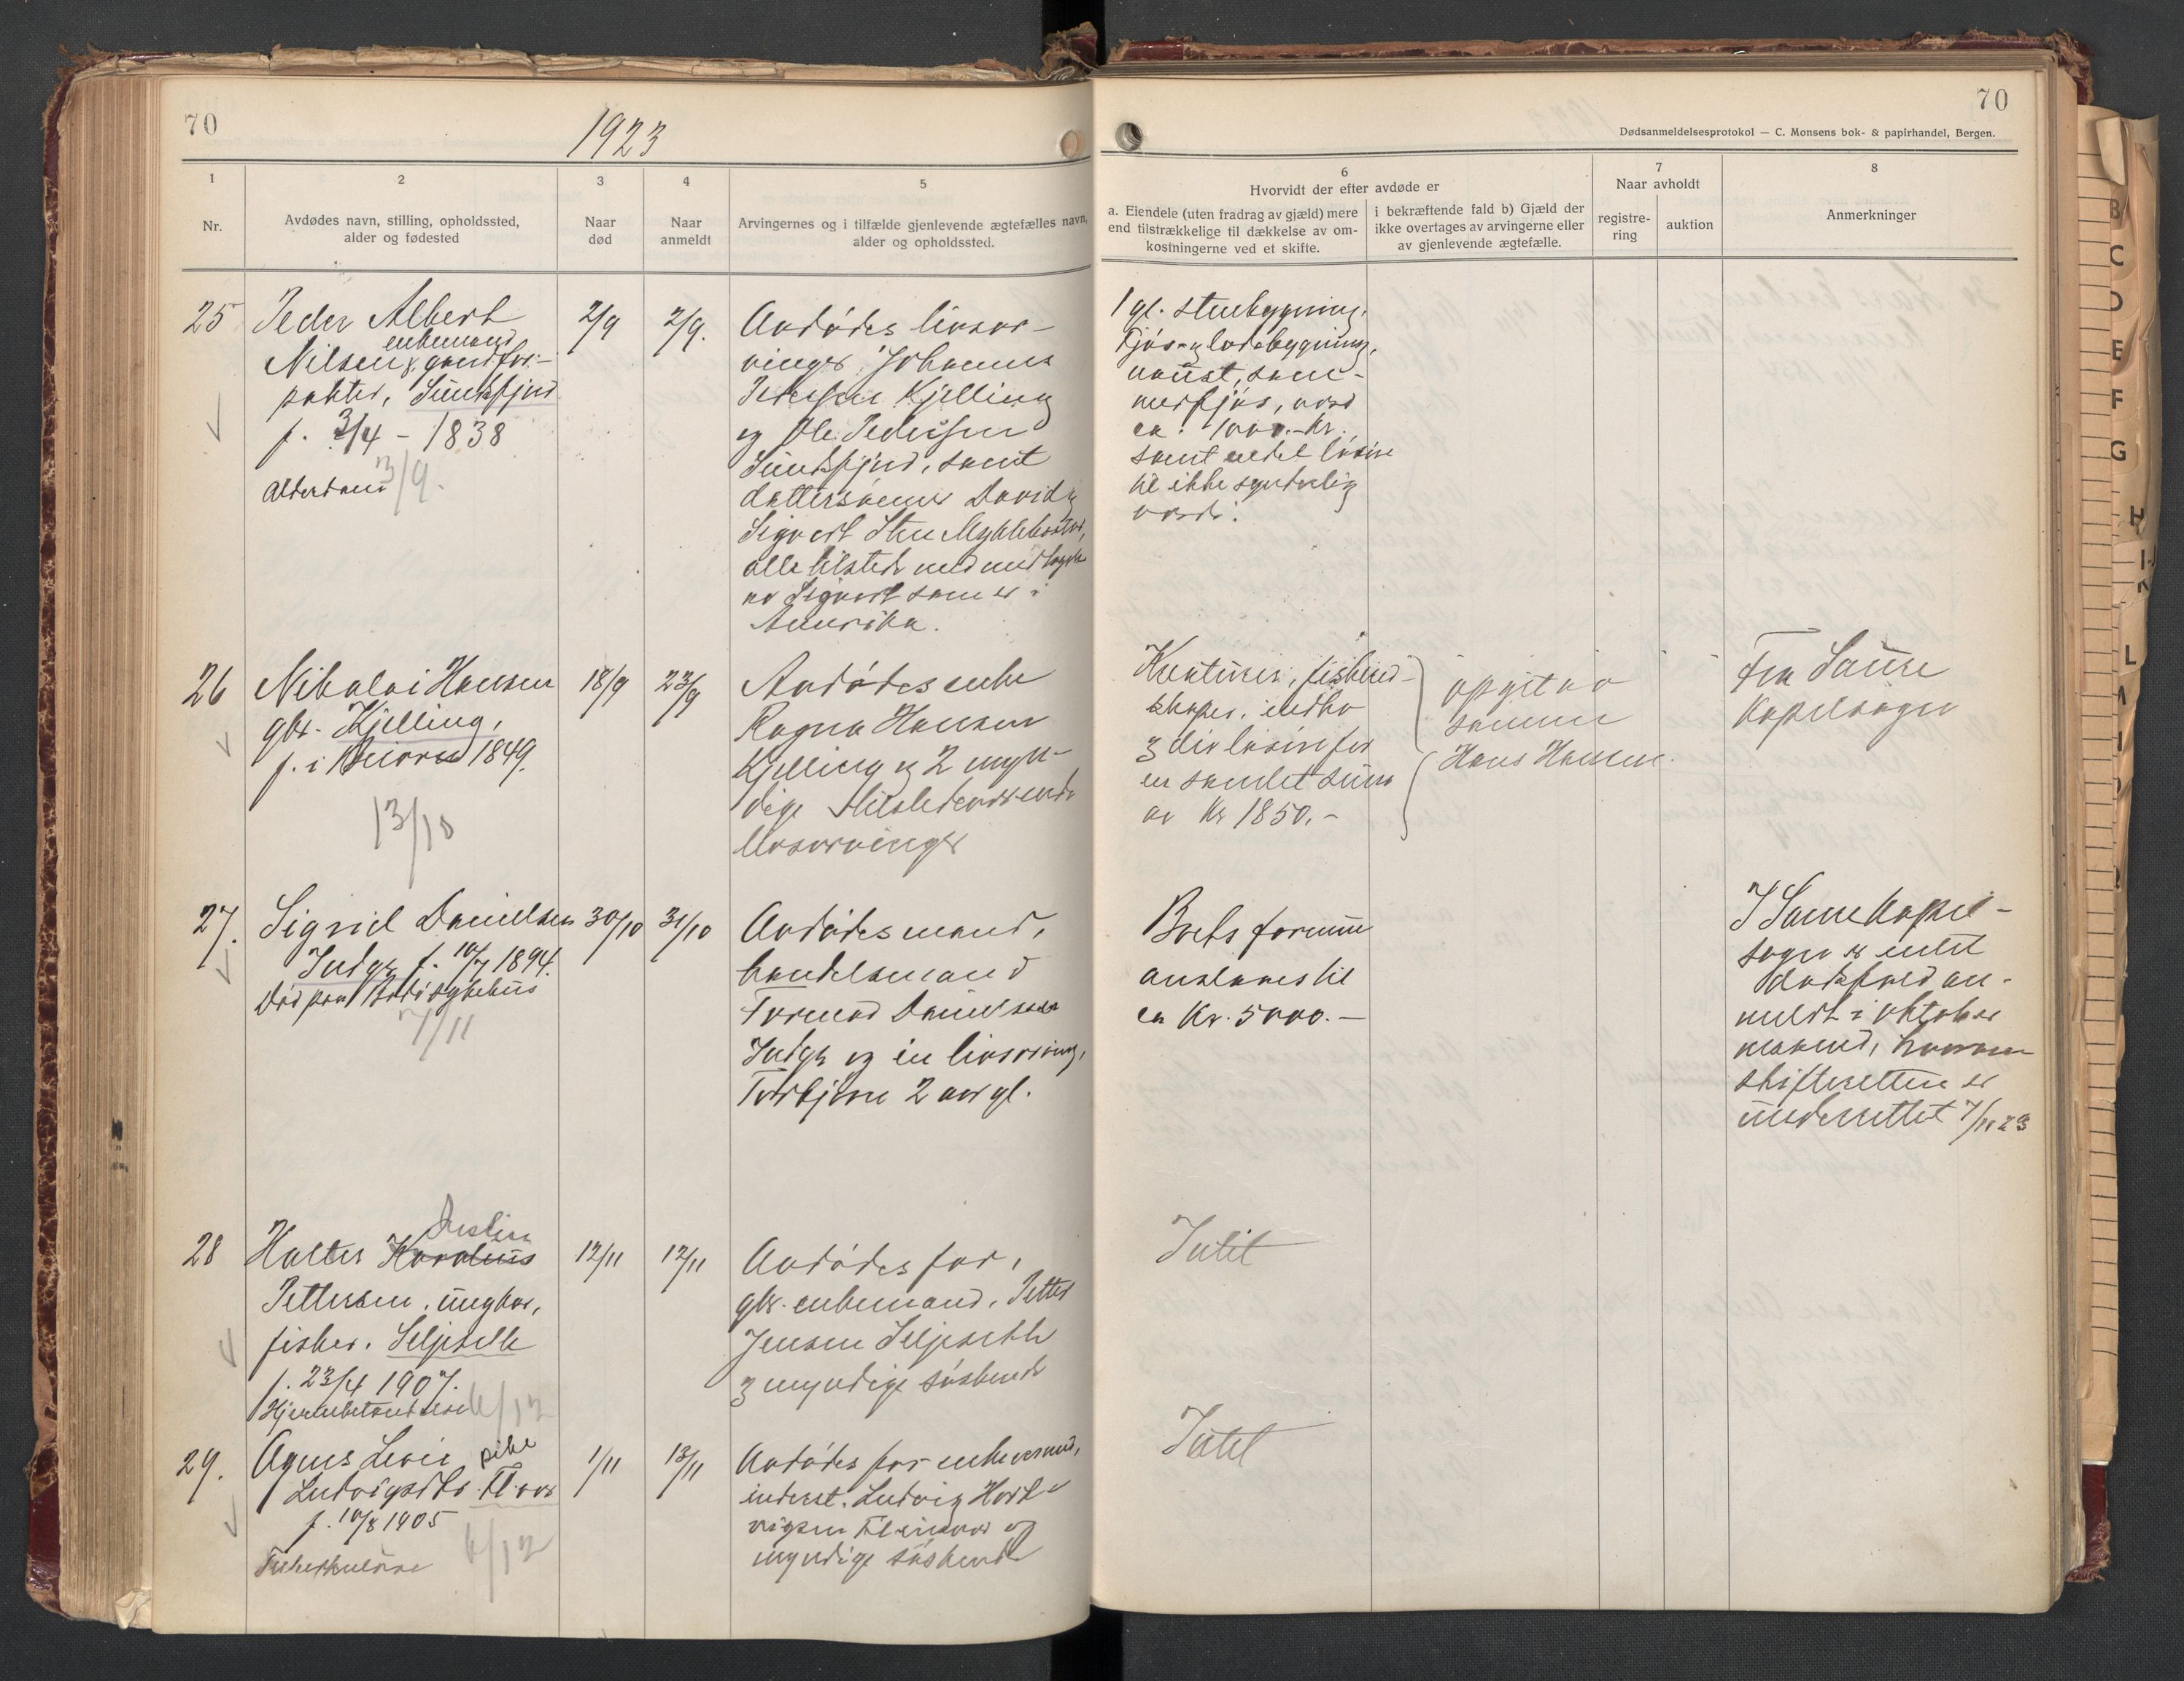 70
1923
1
2
3
4
5
Nr.
Avdødes navn, stilling, opholdssted,
alder og fødested
Naar
død
Naar
anmeldt
Arvingernes og i tilfælde gjenlevende ægtefælles navn,
alder og opholdssted.
70
Dødsanmeldelsesprotokol — C. Monsens bok- & papirhandel, Bergen.
6
Hvorvidt der efter avdøde er
a. Eiendele (uten fradrag av gjæld) mere
end tilstrækkelige til dækkelse av om-
kostningerne ved et skifte.
i bekræftende fald b) Gjæld der
ikke overtages av arvingerne eller
av gjenlevende ægtefælle.
7
Naar avholdt
registre-
ring
auktion
8
Anmerkninger
25
Peder Albert
enkemand
Nilsen, gaardfor-
pakter, Sundsfjord
f. 3/4 - 1838
Alderdom 3/9.
2/9
2/9.
Avdødes livsar-
vinger, Johannes
Pedersen Kjelling
og Ole Pedersen
Sundsfjord, samt
dattersønner David og
Sigvart Sten Myklebostad,
alle tilstede med undtagelse
av Sigvart som er i
Amerika.
1 gl. stenbygning,
Fjøs og ladebygning,
naust, som-
merfjøs, værd
ca. 1000.- Kr.
samt endel løsøre
til ikke synderlig
værdi.
26
Nikolai Hansen
gbr. Kjelling,
f. i Beiaren 1849.
13/10
18/9
23/9
Avdødes enke
Ragna Hansen
Kjelling og 2 myn-
dige tilstedeværende
livsarvinger
Kreaturer, fiskered-
skaper, indbo
og div løsøre for
en samlet sum
av Kr 1850.-
opgit av
sønnen
Hans Hansen.
Fra Saura
Kapelsogn
27.
Sigrid Danielsen
Indgr f. 10/7 1894.
Død paa Bodø sykehus
7/11
30/10
31/10
Avdødes mand,
handelsmand
Tormod Danielsen
Indgr og en livsarving,
Torbjørn 2 aar gl.
Boets formue
anslaaes til
ca Kr. 5000.-
I Saura Kapel-
sogn er intet
dødsfald an-
meldt i oktober
maaned, hvorom
skifteretten er
underrettet 7/11 23
28
Halter Karelius
Pettersen, ungkar,
fisker. Seljeseth
f. 23/4 1907.
6/12
12/11
12/11
Avdødes far,
gbr. enkemand, Petter
Jensen Seljeseth
og myndige søskende
Intet
29.
Agnes Levie pike
Ludvigsdtr.
f. 10/8 1905
Tuberkulose 6/12
1/11
13/11
Avdødes far enkemand,
inderst. Ludvig Hart-
vigsen og
myndige søskende
Intet
B
C
D
E
F
G
H
L